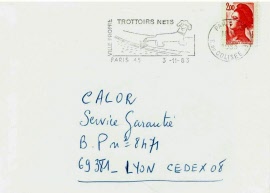 TROTTOIRS NETS
VILLE PROPRE
PARIS 15
3-11-83
2,00
CALOR
Service Garantie
B.P n° 8471
69381_LYON CEDEX 08